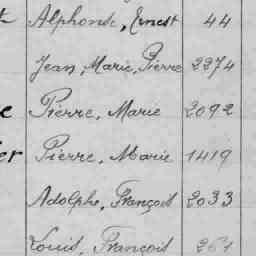 Alphonse, Ernest 44
Jean, Marie, Pierre 2274
Pierre, Marie 2092
er Pierre, Marie 1419
Adolphe, François 2033
Louis, François 261